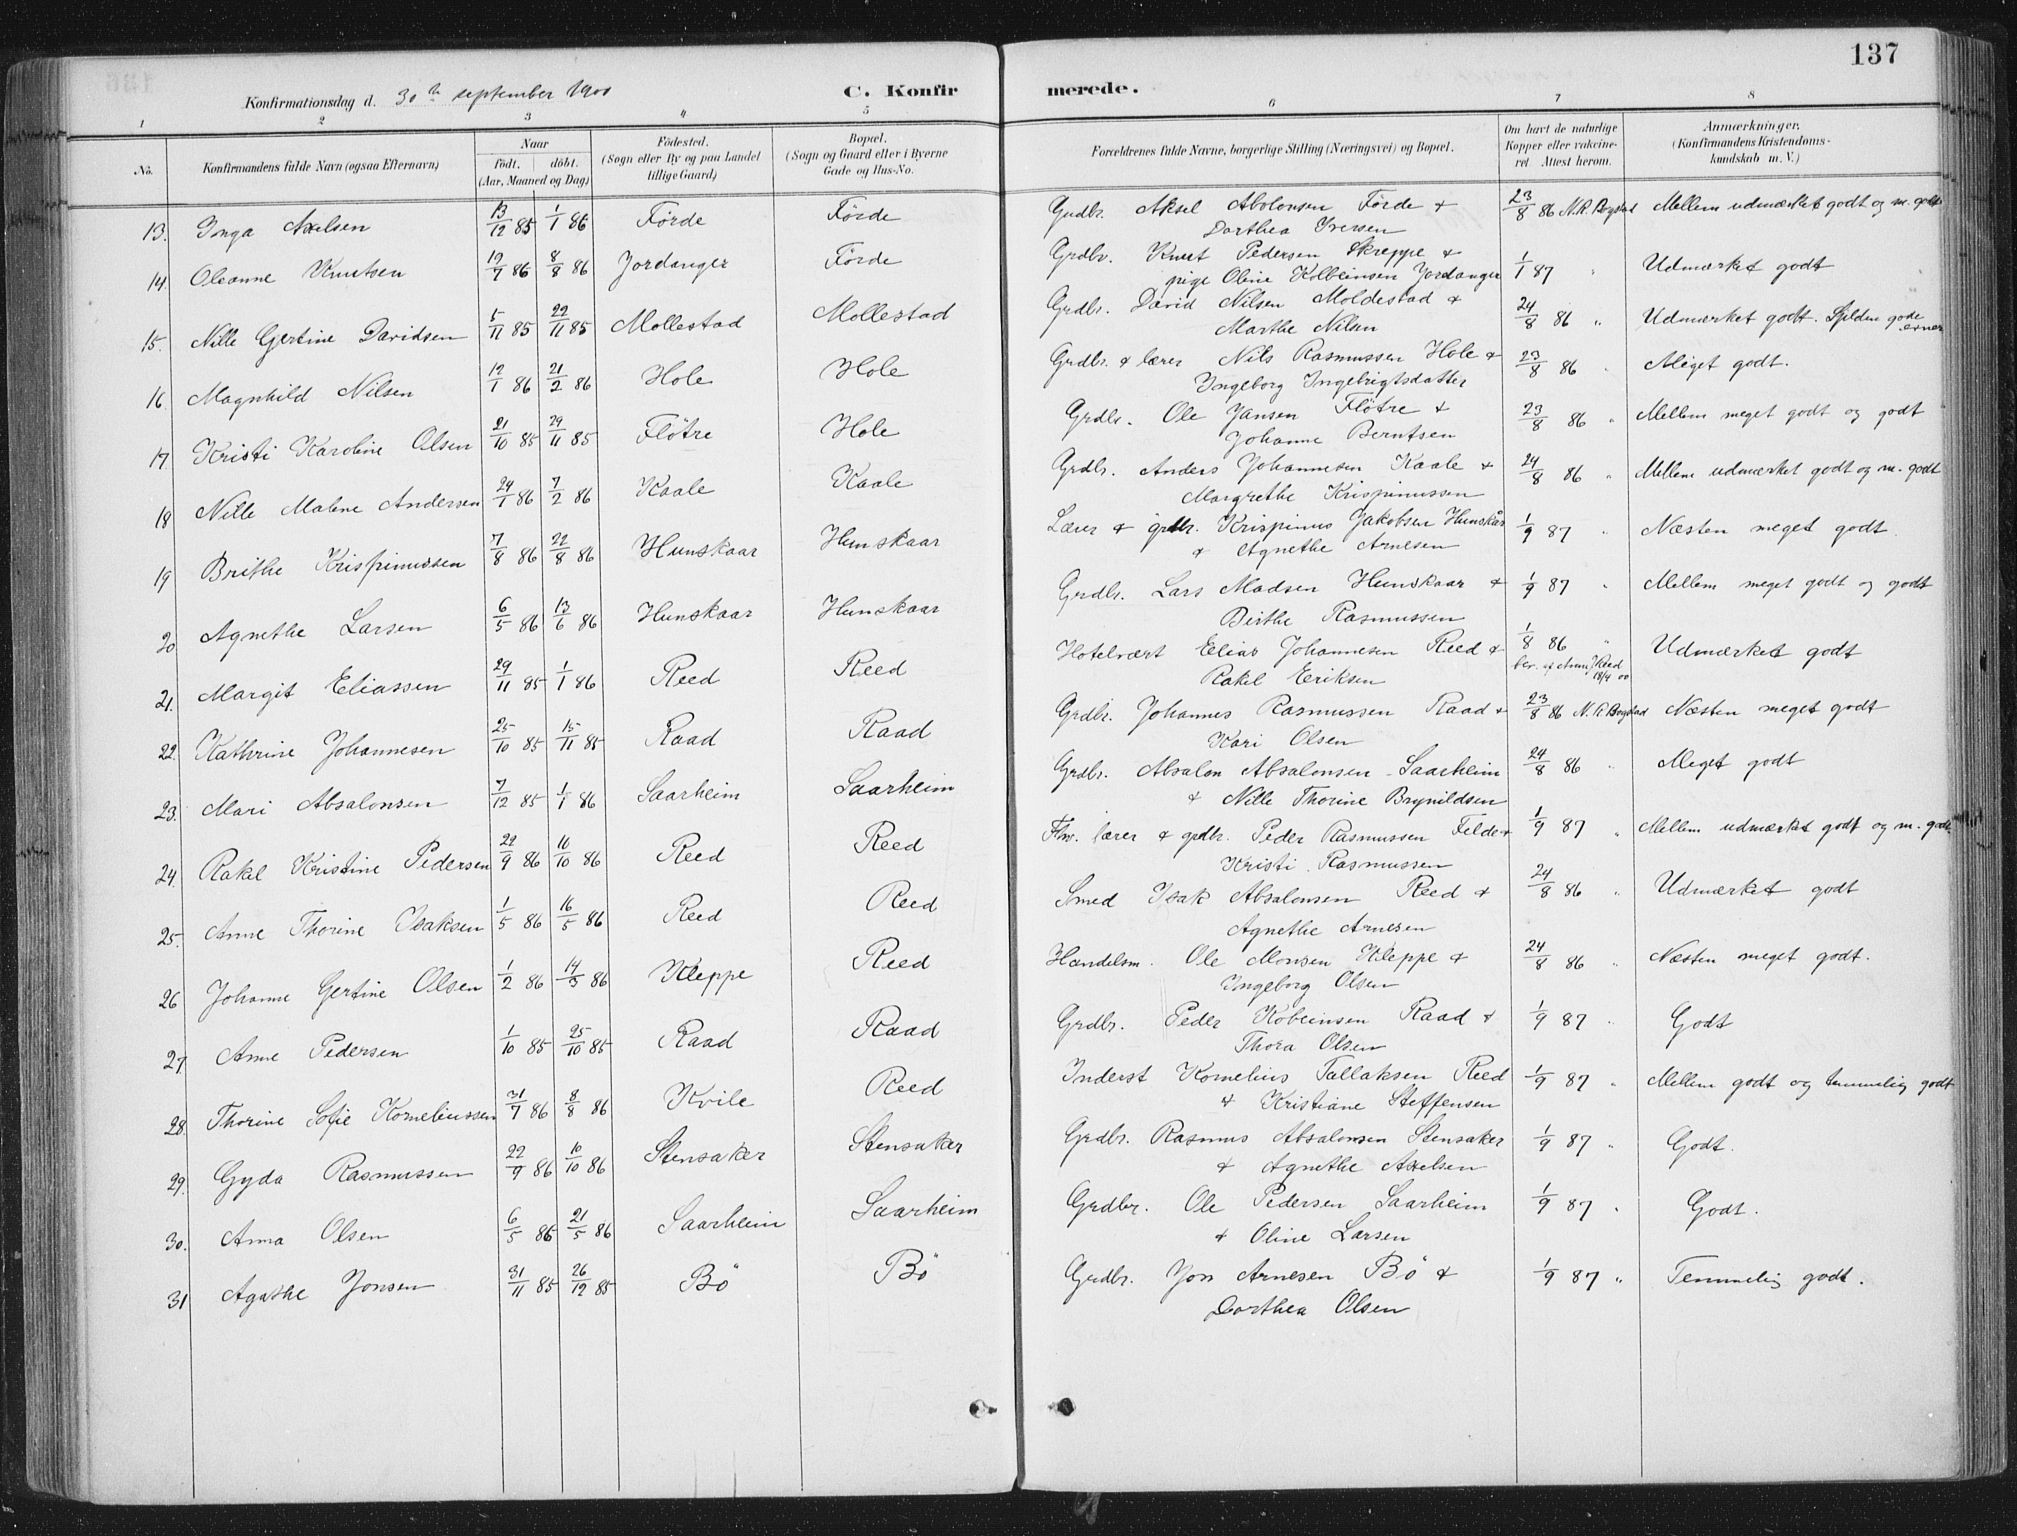 137
Konfirmationsdag d. 30te september 1900 C. Konfirmerede.
1 2 3 4 5 6 7 8
No. Konfirmandens fulde Navn (ogsaa Efternavn) Naar födt. döbt. (Aar, Maaned og Dag) Födested. (Sogn eller By og paa Landet tillige Gaard) Bopæl. (Sogn og Gaard eller i Byerne Gade og Hus-No. Forældrenes fulde Navne, borgerlige Stilling (Næringsvei) og Bopæl. Om havt de naturlige Kopper eller vakcineret. Attest herom. Anmærkninger. (Konfirmandens Kristendomskundskab m. V.)
13. Inga Axelsen 13/12 85 1/1 86 Förde Förde Grdbr. Aksel Abslonsen Förde & Dorthea Iversen 23/8 86 N. R. Bogstad Mellem udmærket godt og m. godt
14. Oleanne Knutsen 19/7 86 8/8 86 Jordanger Förde Grdbr. Knut Pedersen Skreppe & pige Oline Kolbeinsen Jordanger 1/1 87 " Udmærket godt
15. Nille Gertine Davidsen 5/11 85 22/11 85 Mollestad Mollestad Grdbr. David Nilsen Moldestad & Marthe Nilsen 24/8 86 " Udmærket godt. Sjelden gode evner
16. Magnhild Nilsen 12/1 86 21/2 86 Hole Hole Grdbr. & lærer Nils Rasmussen Hole & Ingeborg Ingebrigtsdatter 23/8 86 " Meget godt.
17. Kristi Karoline Olsen 21/10 85 29/11 85 Flötre Hole Grdbr. Ole Jansen Flötre & Johanne Berntsen 23/8 86 " Mellem meget godt og godt
18 Nille Malene Andersen 24/1 86 7/2 86 Kaale Kaale Grdbr. Anders Johannesen Kaale & Margrethe Krispinussen 24/8 86 " Mellem udmærket godt og m. godt
19 Brithe Krispinussen 7/8 86 22/8 86 Hunskaar Hunskaar Lærer & grdbr. Krispinus Jakobsen Hunskår & Agnethe Arnesen 1/9 87 " Næsten meget godt.
20 Agnethe Larsen 6/5 86 13/6 86 Hunskaar Hunskaar Grdbr. Lars Madsen Hunskaar & Birthe Rasmussen 1/9 87 " Mellem meget godt og godt
21. Margit Eliassen 29/11 85 1/1 86 Reed Reed Hotelvært Elias Johannesen Reed & Rakel Eriksen 1/8 86 " Reed 18/4 00 Udmærket godt
22. Kathrine Johannesen 25/10 85 15/11 85 Raad Raad Grdbr. Johannes Rasmussen Raad & Kari Olsen 23/8 86 N. R. Bogstad Næsten meget godt
23. Mari Absalonsen 7/12 85 1/1 86 Saarheim Saarheim Grdbr. Absalon Absalonsen Saarheim & Nille Thorine Brynildsen 24/8 86 " Meget godt
24. Rakel Kristine Pedersen 22/9 86 10/10 86 Reed Reed Fhv. lærer & grdbr. Peder Rasmussen Felde & Kristi Rasmussen 1/9 87 " Mellem udmærket godt og m. godt.
25. Anne Thorine Isaksen 1/5 86 16/5 86 Reed Reed Smed Isak Absalonsen Reed & Agnethe Arnesen 24/8 86 " Udmærket godt
26 Johanne Gertine Olsen 1/2 86 14/3 86 Kleppe Reed Handelsm. Ole Monsen Kleppe & Ingeborg Olsen 24/8 86 " Næsten meget godt.
27. Anne Pedersen 1/10 85 25/10 85 Raad Raad Grdbr. Peder Kobeinsen Raad & Thora Olsen 1/9 87 " Godt
28. Thorine Sofie Korneliussen 31/7 86 8/8 86 Kvile Reed Inderst Kornelius Tallaksen Reed & Kristiane Steffensen 1/9 87 " Mellem godt og temmelig godt
29. Gyda Rasmussen 22/9 86 10/10 86 Stensaker Stensaker Grdbr. Rasmus Absalonsen Stensaker & Agnethe Axelsen 1/9 87 " Godt.
30. Anna Olsen 6/5 86 21/5 86 Saarheim Saarheim Grdbr. Ole Pedersen Saarheim & Oline Larsen 1/9 87 " Godt.
31 Agathe Jonsen 31/11 85 26/12 85 Bö Bö Grdbr. Jon Arnesen Bö & Dorthea Olsen 1/9 87 " Temmelig godt.